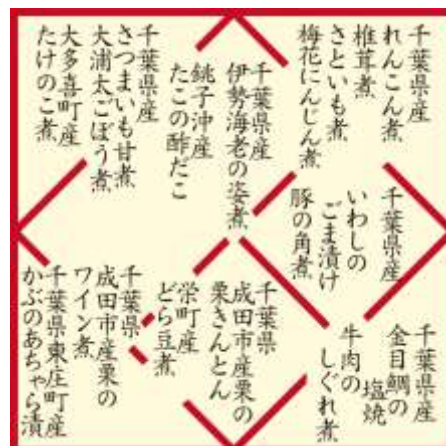 千葉県産
れんこん煮
椎茸煮
さといも煮
梅花にんじん煮
千葉県産
伊勢海老の姿煮
銚子沖産
たこの酢だこ
千葉県産
さつまいも甘煮
大浦太ごぼう煮
大多喜町産
たけのこ煮
千葉県産
いわしの
ごま漬け
豚の角煮
金目鯛の
塩焼
牛肉の
しぐれ煮
千葉県
成田市産栗の
栗きんとん
栄町産
どら豆煮
千葉県
成田市産栗の
ワイン煮
千葉県東庄町産
かぶのあちゃら漬